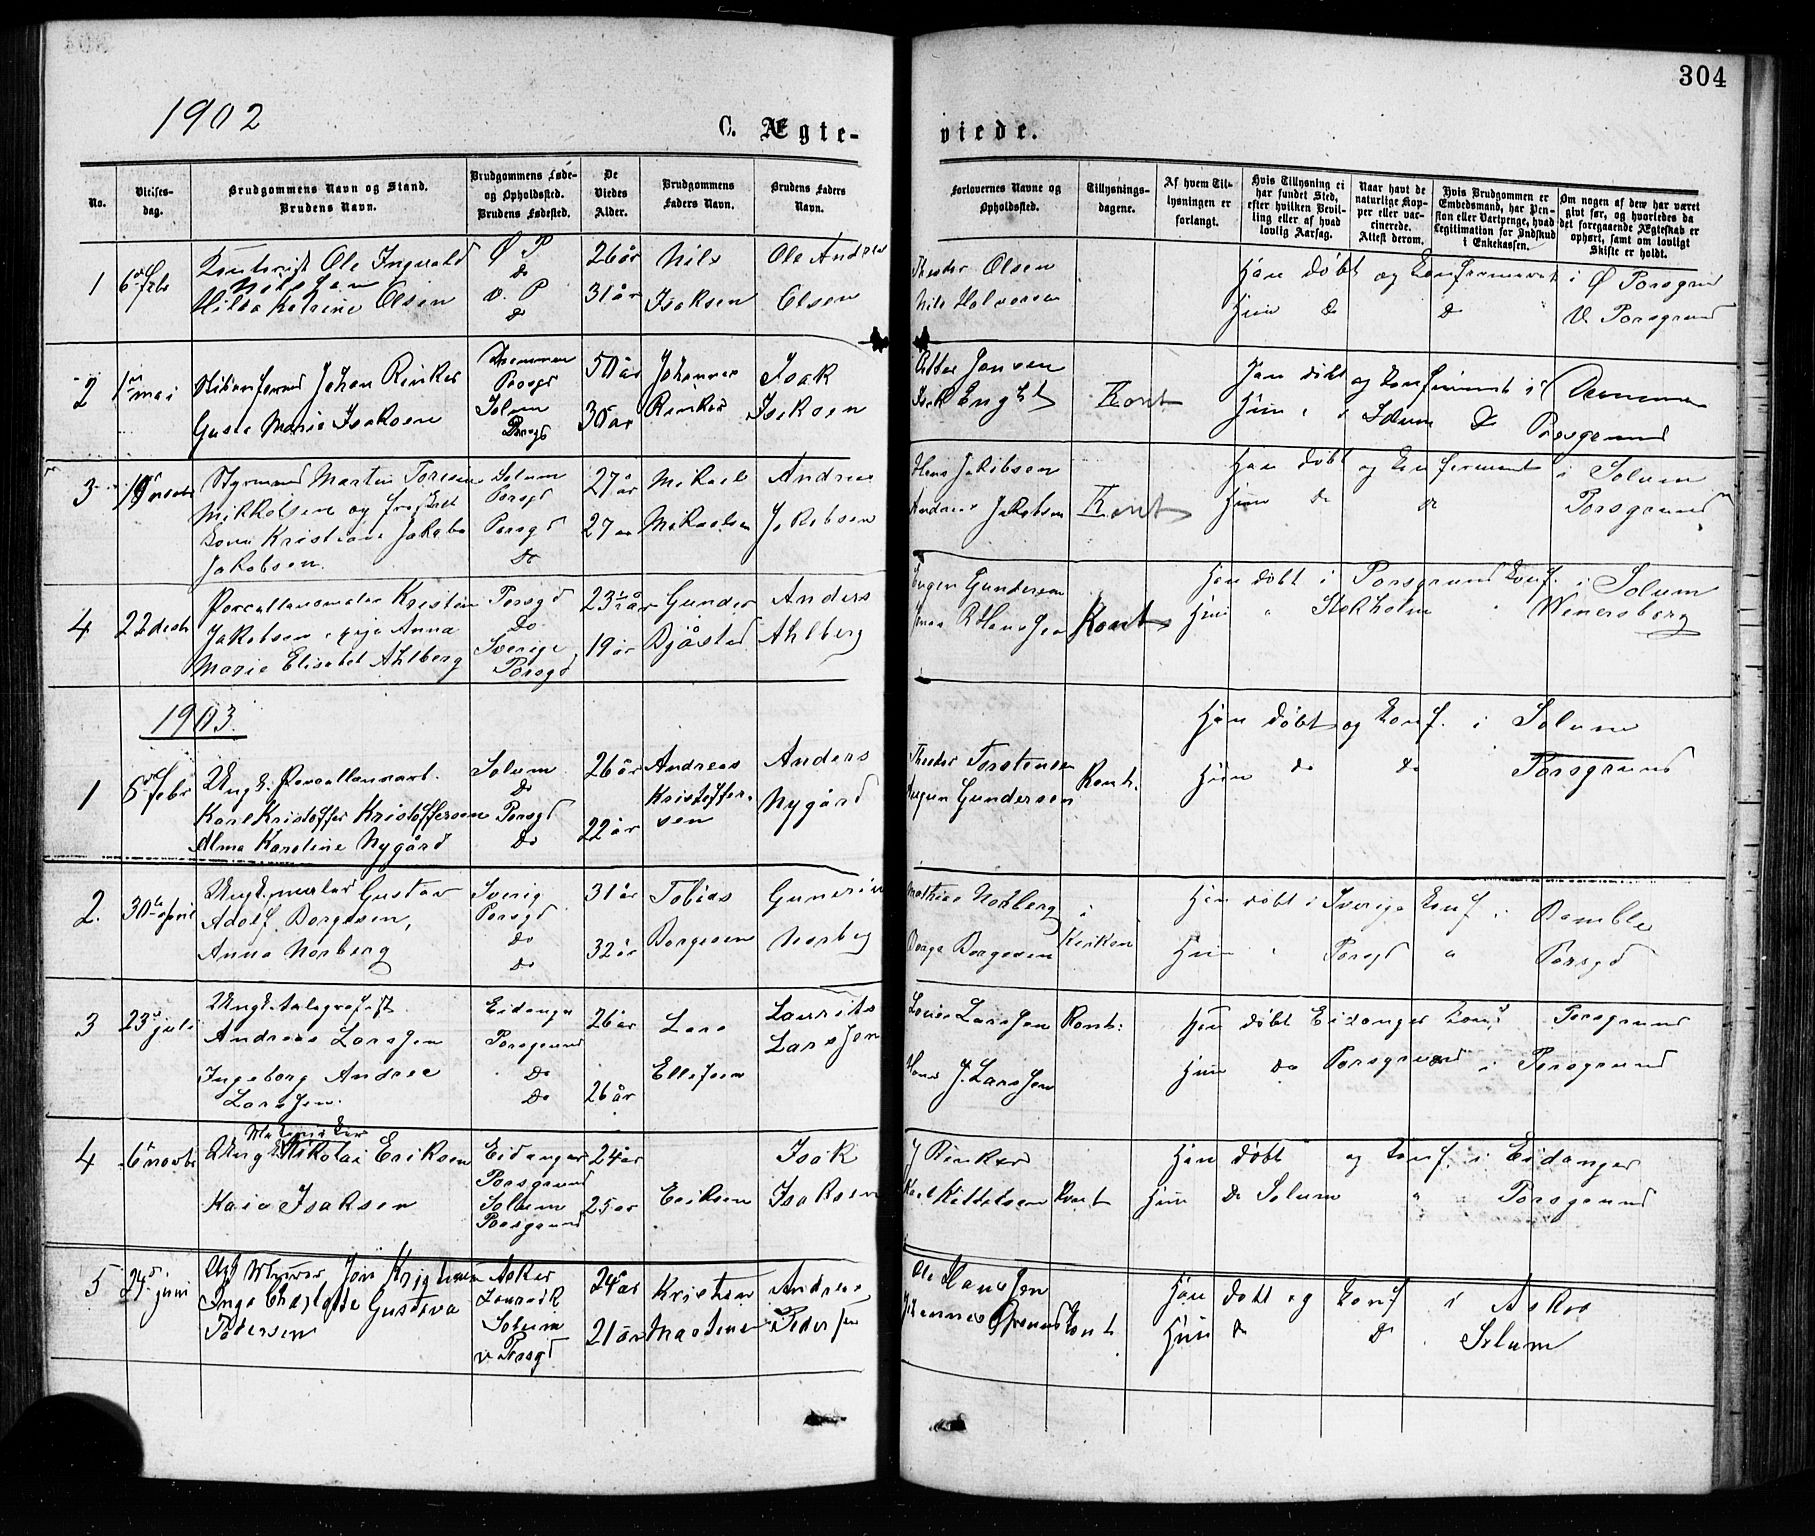 304
1902
C. Ægte-
viede.
No.
Vielses-
dag.
Brudgommens Navn og Stand.
Brudens Navn.
Brudgommens Føde-
og Opholdssted.
Brudens Fødested.
De
Viedes
Alder.
Brudgommens
Faders Navn.
Brudens Faders
Navn.
Forlovernes Navne og
Opholdssted.
Tillysnings-
dagene.
Af hvem Til-
lysningen er
forlangt.
Hvis Tillysning ei
har fundet Sted,
efter hvilken Bevil-
ling eller af hvad
lovlig Aarsag.
Naar havt de
naturlige Kop-
per eller vac-
cinerede.
Attest derom.
Hvis Brudgommen er
Embedsmand, har Pen-
sion eller Vartpenge, hvad
Legitimation for Indskud
i Enkekassen.
Om nogen af dem har været
gift før, og hvorledes da
det foregaaende Ægteskab er
ophørt, samt om lovligt
Skifte er holdt.
1
6 febr
Ole Ingvald
Nilssen
Hilda Katrine Olsen
Ø P
Do
V. P
Do
26 år
31 år
Nils
Isaksen
Ole Andreas
Olsen
Theodor Olsen
Nils Halvorsen
Han døbt og konfirmeret i Ø Porsgrund
Hun Do Do V. Porsgrund
2
1 mai
Johan Rinker
Gusta Maria Isaksen
Drammen
Porsgd
Solum
Porsgd
50 år
30 år
Johannes
Rinker
Isak
Isaksen
Jensen
Kont
Han døbt og konfirmeret i Drammen
Hun " i Solum Do Porsgrund
3
19
Styrmand Martin Toresen
Mikkelsen og frøken
Kristiane Jakoba
Jakobsen.
Solum
Porsgd
Porsgd
Do
27 år
27 år
Mikael
Mikaelsen
Andreas
Jakobsen
Hans Jakobsen
Andreas Jakobsen
Kont
Han døbt og konfirmeret i Solum
Hun Do Do Porsgrund
4
22 decbr
Porcellansmaler Kristen
Jakobsen pige Anna
Marie Elisabet Ahlberg
Porsgd
Do
Sverige
Porsgd
23 ½ år
19 år
Gunder
Bjåstad
Anders
Ahlberg
Jørgen Gundersen
Hanssen
Kont
Han døbt i Porsgrund konf. i Solum
Hun " Stokholm " Wenersborg
1903.
1
5 febr
Ungk. Porcellansarb.
Karl Kristoffer Kristoffersen
Alma Karoline Nygård
Solum
Do
Porsgd
Do
26 år
22 år
Andreas
Kristoffer-
sen
Anders
Nygård
Theodor Torstensen
Jørgen Gundersen
Kont.
Han døbt og konf. i Solum
Hun do do Porsgrund
2.
30 april
Ungk. murer Gustav
Adolf Borgesen,
Anna Norberg
Sverig
Porsgd
do
do
31 år
32 år
Tobias
Borgesen
Gunerius
Norberg
Mathias Norberg
Børge Borgesen
i
Kirken
Han døbt i Sverige konf. i Bamble
Hun " Porsgd " Porsgd
3
23 juli
Ungk. telegrafist
Andreas Larssen
Ingeborg Andrea
Larssen.
Eidanger
Porsgrund
Do
Do
26 år
26 år
Lars
Ellefsen
Laurits
Larssen
Louise Larssen
Hans J. Larssen
Kont:
Han døbt Eidanger konf Porsgrund
Hun do Porsgrund i Porsgrund
4
6 novbr
Ungk Nikolai Eriksen
Kaia Isaksen
Eidanger
Porsgrund
Solum
Porsgrund
24 år
25 år
Eriksen
Isak
Isaksen
J Rinker
Karl Kittelsen
Kont
Han døbt og konf. i Eidanger
Hun do Solum " Porsgrund
5
24 juni
Jon Kristensen
Inga Charlotte Gustava
Pedersen
Asker
Larvik
Solum
v Porsgd
24 år
21 år
Kristian
Martens
Andreas
Pedersen
Ole Hanssen
Kont
Han døbt og konf i Asker
Hun do do Solum